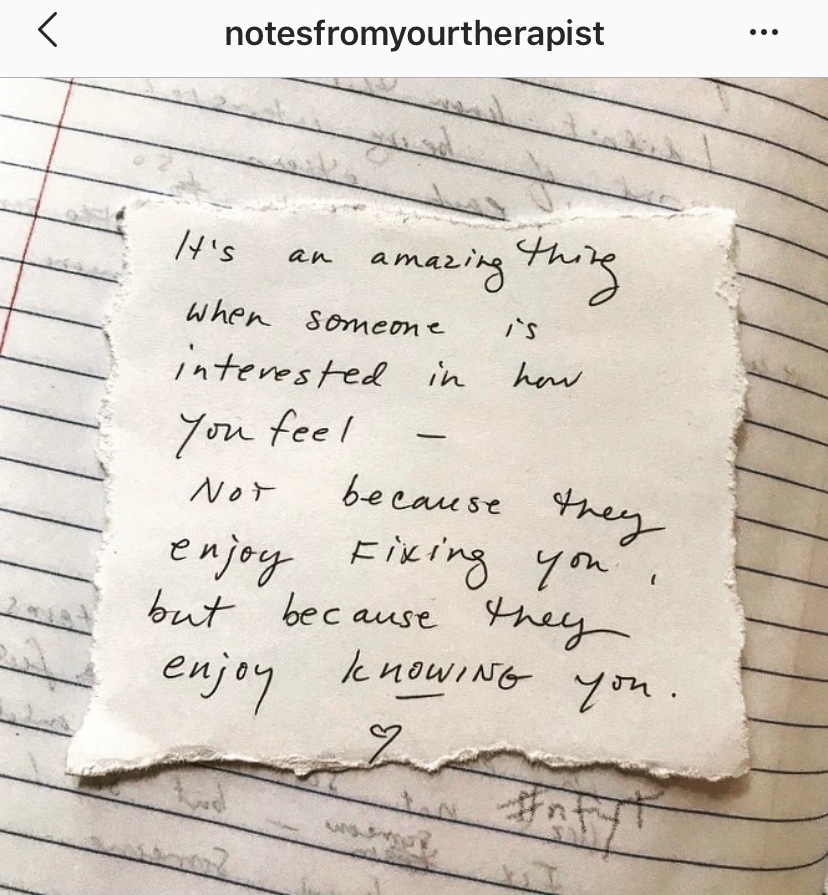 notesfromyourtherapist
It's an amazing thing
when someone is
interested in how
you feel —
Not because they
enjoy Fixing you,
but because they
enjoy knowing you.
#nfyt